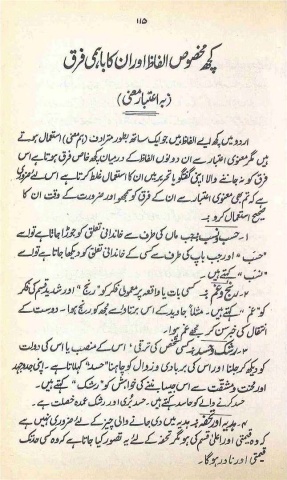 ۱۱۵
کچھ مخصوص الفاظ اور ان کا باہمی فرق
(بہ اعتبارِ معنی)
اردو میں کچھ ایسے الفاظ ہیں جو ایک ساتھ بطور مترادف (ہم معنی) استعمال ہوتے
ہیں مگر معنوی اعتبار سے ان دونوں الفاظ کے درمیان کچھ خاص فرق ہوتا ہے اس
فرق کو نہ جاننے والا اپنی گفتگو یا تحریر میں ان کا استعمال غلط کرتا ہے اس لئے ضروری
ہے کہ تم بھی معنوی اعتبار سے ان کے فرق کو سمجھو اور ضرورت کے وقت ان کا
صحیح استعمال کرو :۔
۱۔ حسب و نسب :۔ جب ماں کی طرف سے خاندانی تعلق کو جوڑا جاتا ہے تو اسے
"حسب" اور جب باپ کی طرف سے کسی کے خاندانی تعلق کو دیکھا جاتا ہے تو اسے
"نسب" کہتے ہیں۔
۲۔ رنج و غم :۔ کسی بات یا واقعہ پر معمولی فکر کو "رنج" اور شدید قسم کی فکر
کو "غم" کہتے ہیں۔ مثلاً جاوید کے اس برتاؤ سے مجھ کو رنج ہوا۔ دوست کے
انتقال کی خبر سن کر مجھے غم ہوا۔
۳۔ رشک و حسد :۔ کسی شخص کی ترقی، اس کے منصب یا اس کی دولت
کو دیکھ کر جلنا اور اس کی بربادی و زوال کو چاہنا "حسد" کہلاتا ہے۔ اپنی جدوجہد
اور محنت و مشقت سے اس جیسا بننے کی خواہش کو "رشک" کہتے ہیں۔
حسد کرنے والے کو حاسد کہتے ہیں۔ حسد بُری اور رشک عمدہ خصلت ہے۔
۴۔ ہدیہ اور تحفہ :۔ ہدیہ میں دی جانے والی چیز کے لئے ضروری نہیں ہے
کہ وہ قیمتی اور اعلیٰ قسم کی ہو مگر تحفہ کے لئے یہ تصور کیا جاتا ہے کہ وہ کسی حد تک
قیمتی اور نادر ہوگا۔